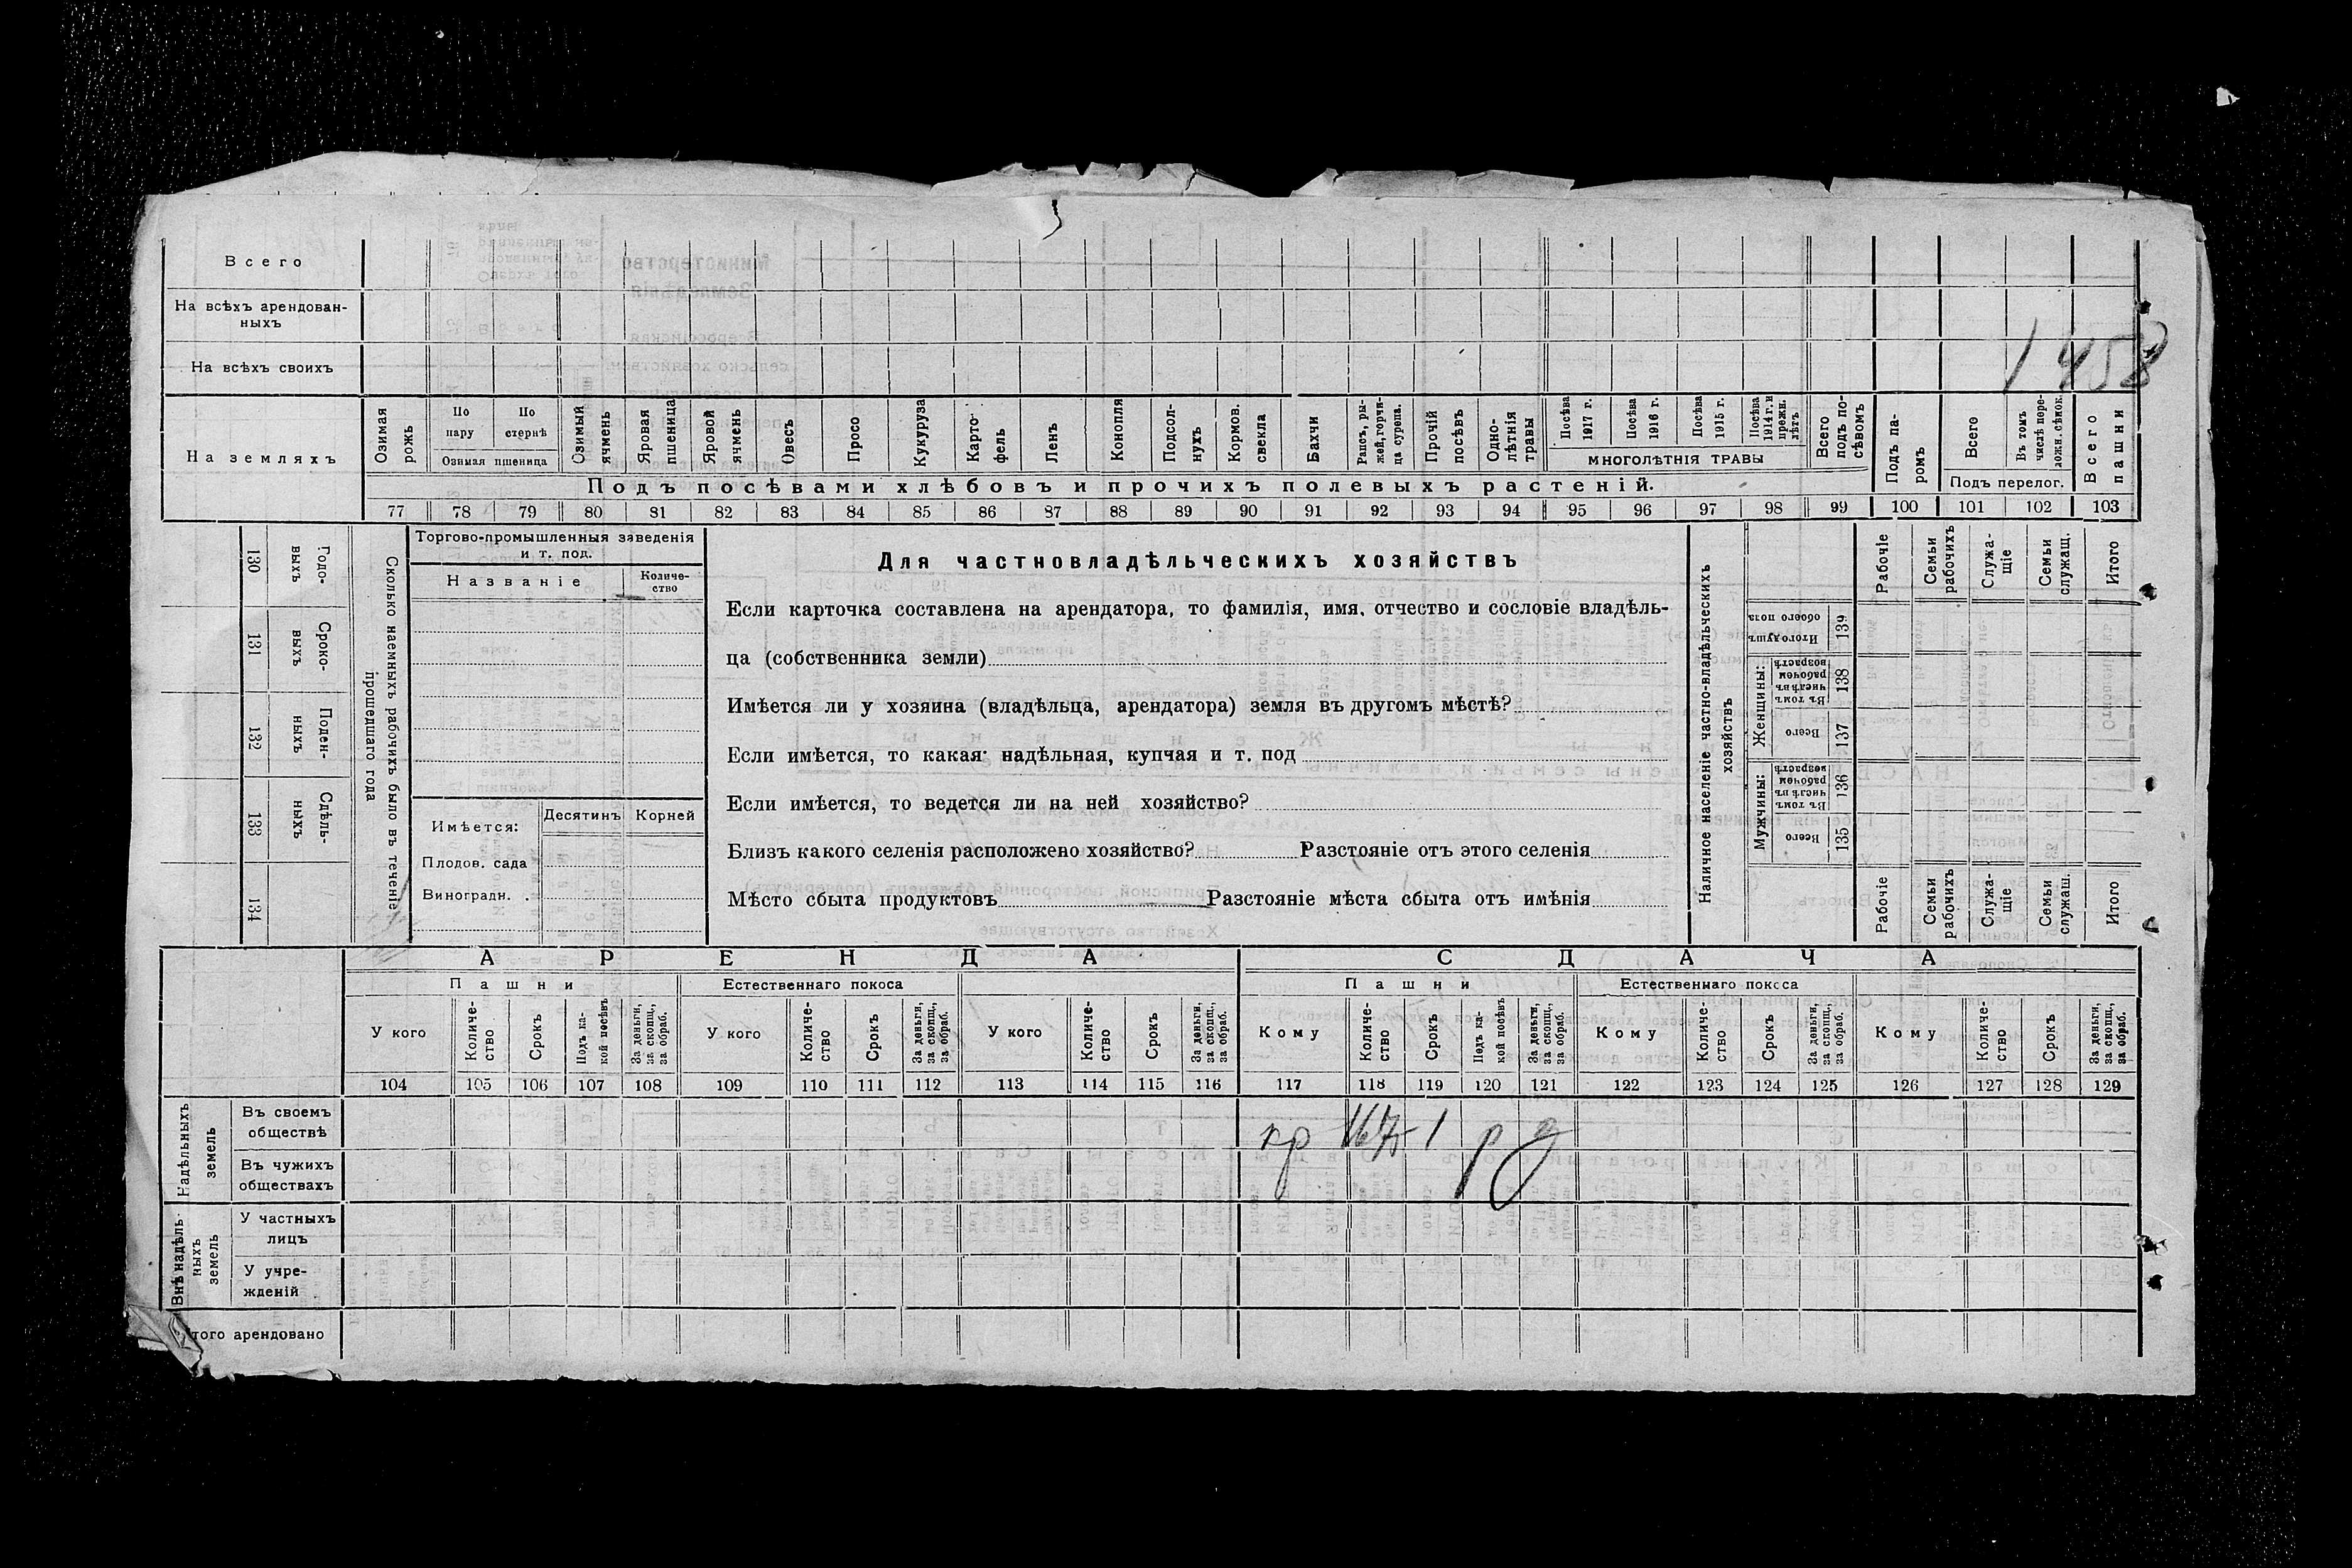 Всего
На всѣхъ арендован-
ныхъ
На всѣхъ своихъ
1458
На земляхъ
Озимая рожь
По пару
По стернѣ
Озимая пшеница
Озимый ячмень
Яровая пшеница
Яровой ячмень
Овесъ
Просо
Кукуруза
Карто-
фель
Ленъ
Конопля
Подсол-
нухъ
Кормов. свекла
Бахчи
Рапсъ, ры-
жей, горчи-
ца сурепа.
Прочій посѣвъ
Одно-
лѣтнія травы
Посѣва 1917 г.
Посѣва 1916 г.
Посѣва 1915 г.
Посѣва 1914 г. и прежн. лѣтъ
МНОГОЛѢТНІЯ ТРАВЫ
Всего подъ по-
сѣвомъ
Подъ па-
ромъ
Всего
Въ томъ числѣ пере-
ложн. сѣнок.
Подъ перелог.
Всего пашни
Подъ посѣвами хлѣбовъ и прочихъ полевыхъ растеній.
77 78 79 80 81 82 83 84 85 86 87 88 89 90 91 92 93 94 95 96 97 98 99 100 101 102 103
Сколько наемныхъ рабочихъ было въ теченіе
прошедшаго года
Годо-
выхъ
130
Сроко-
выхъ
131
Поден-
ныхъ
132
Сдѣль-
ныхъ
133
134
Торгово-промышленныя заведенія
и т. под.
Названіе
Количе-
ство
Имѣется:
Десятинъ
Корней
Плодов. сада
Виноградн. .
Для частновладѣльческихъ хозяйствъ
Если карточка составлена на арендатора, то фамилія, имя, отчество и сословіе владѣль-
ца (собственника земли)
Имѣется ли у хозяина (владѣльца, арендатора) земля въ другомъ мѣстѣ?
Если имѣется, то какая: надѣльная, купчая и т. под
Если имѣется, то ведется ли на ней хозяйство?
Близъ какого селенія расположено хозяйство? Разстояніе отъ этого селенія
Мѣсто сбыта продуктовъ Разстояніе мѣста сбыта отъ имѣнія
Наличное населеніе частно-владѣльческихъ
хозяйствъ
Итого душъ обоего пола
139
Женщины:
Въ томъ числѣ въ рабочемъ возрастѣ
138
Всего
137
Мужчины:
Въ томъ числѣ въ рабочемъ возрастѣ
136
Всего
135
Рабочіе
Семьи рабочихъ
Служа-
щіе
Семьи служащ.
Итого
Рабочіе
Семьи рабочихъ
Служа-
щіе
Семьи служащ.
Итого
АРЕНДА
СДАЧА
Пашни
Естественнаго покоса
Пашни
Естественнаго покоса
У кого
Количе-
ство
Срокъ
Подъ ка-
кой посѣвъ
За деньги, за скопщ., за обраб.
У кого
Количе-
ство
Срокъ
За деньги, за скопщ., за обраб.
У кого
Количе-
ство
Срокъ
За деньги, за скопщ., за обраб.
Кому
Количе-
ство
Срокъ
Подъ ка-
кой посѣвъ
За деньги, за скопщ., за обраб.
Кому
Количе-
ство
Срокъ
За деньги, за скопщ., за обраб.
Кому
Количе-
ство
Срокъ
За деньги, за скопщ., за обраб.
104 105 106 107 108 109 110 111 112 113 114 115 116 117 118 119 120 121 122 123 124 125 126 127 128 129
Надѣльныхъ земель
Въ своемъ
обществѣ
кр 1 р д
Въ чужихъ
обществахъ
Внѣ надѣль-
ныхъ земель
У частныхъ
лицъ
У учре-
жденій
Итого арендовано